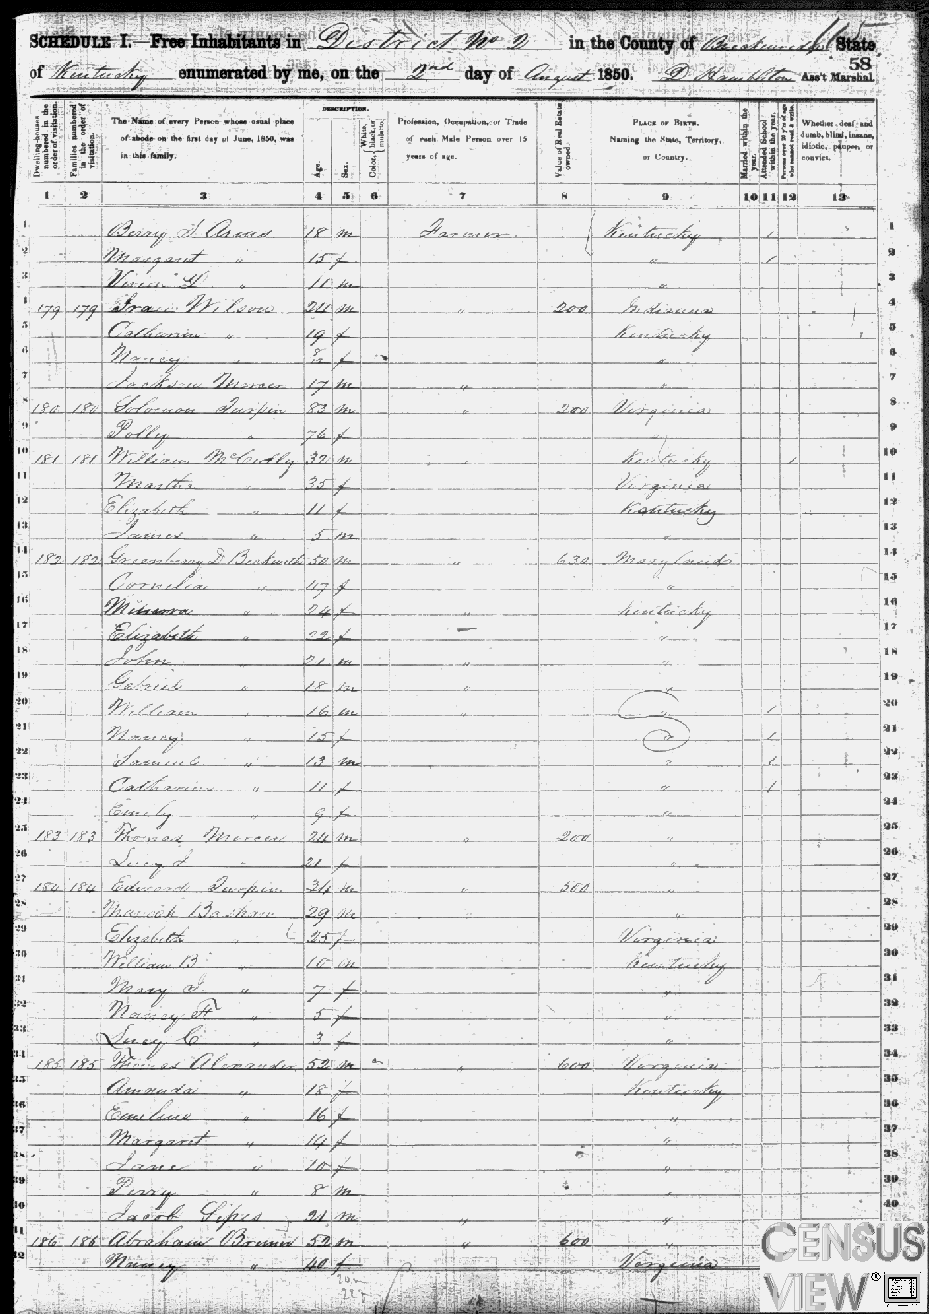 115
SCHEDULE I.—Free Inhabitants in District No 2 in the County of State
58
of Kentucky enumerated by me, on the 2nd day of August 1850. Ass't Marshal.
Dwelling-houses numbered in the order of visitation.
Families numbered in the order of visitation.
The Name of every Person whose usual place of abode on the first day of June, 1850, was in this family.
DESCRIPTION.
Age.
Sex.
Color, White, black, or mulatto.
Profession, Occupation, or Trade of each Male Person over 15 years of age.
Value of Real Estate owned.
PLACE OF BIRTH. Naming the State, Territory, or Country.
Married within the year.
Attended School within the year.
Persons over 20 y'rs of age who cannot read & write.
Whether deaf and dumb, blind, insane, idiotic, pauper, or convict.
1 2 3 4 5 6 7 8 9 10 11 12 13
1 Berry 18 m Farmer Kentucky 1 1
2 Margaret " 15 f " 1 2
3 " 11 m " 3
4 179 179 Wilson 24 m " 200 Indiana 4
5 Catharine " 19 f Kentucky 5
6 Nancy " f " 6
7 Jackson Mercer 17 m " " 7
8 180 180 Solomon Turpin 83 m " 200 Virginia 8
9 Polly " 76 f " 9
10 181 181 William 37 m " Kentucky 1 10
11 Martha " 35 f Virginia 11
12 Elizabeth " 11 f Kentucky 12
13 James " 5 m " 13
14 182 182 Greenberry D Beckwith 50 m " 630 Maryland 14
15 Cornelia " 47 f " 15
16 Minerva " 24 f " Kentucky 16
17 Elizabeth " 22 f " 17
18 John " 21 m " 18
19 Gabriel " 18 m " " 19
20 William " 16 m " " 1 20
21 Nancy " 15 f " 1 21
22 Samuel " 13 m " 1 22
23 Catharine " 11 f " 1 23
24 Emily " 9 f " 24
25 183 183 Thomas Mercer 24 m " 200 " 25
26 Lucy J " 21 f " 26
27 184 184 Edward Turpin 34 m " 300 " 27
28 Bashaw 29 m " " 28
29 Elizabeth " 25 f Virginia 29
30 William B " 10 m Kentucky 30
31 Mary J " 7 f " 31
32 Nancy F " 5 f " 32
33 Lucy C " 3 f " 33
34 185 185 Thomas Alexander 52 m " 600 Virginia 34
35 Amanda " 18 f Kentucky 35
36 Emeline " 16 f " 36
37 Margaret " 14 f " 37
38 Jane " 10 f " 38
39 Perry " 8 m " 39
40 Jacob Sipes 21 m " " 40
41 186 186 Abraham 52 m " 600 "
42 Nancy " 40 f Virginia
CENSUS
VIEW